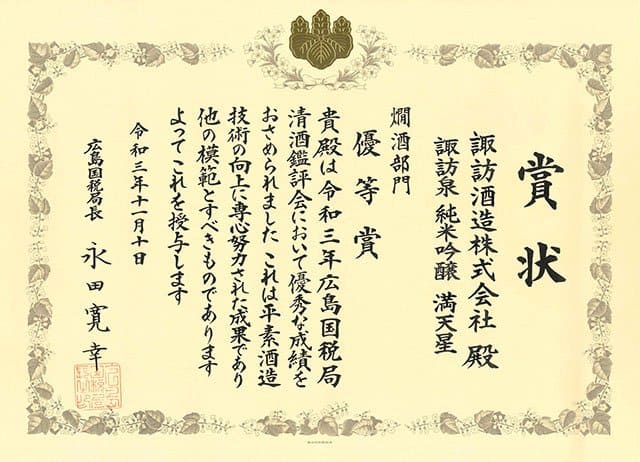 賞状
諏訪酒造株式会社 殿
諏訪泉 純米吟醸 満天星
燗酒部門
優等賞
貴殿は令和三年広島国税局
清酒鑑評会において優秀な成績を
おさめられました これは平素酒造
技術の向上に専心努力された成果であり
他の模範とすべきものであります
よってこれを授与します
令和三年十一月十日
広島国税局長 永田寛幸